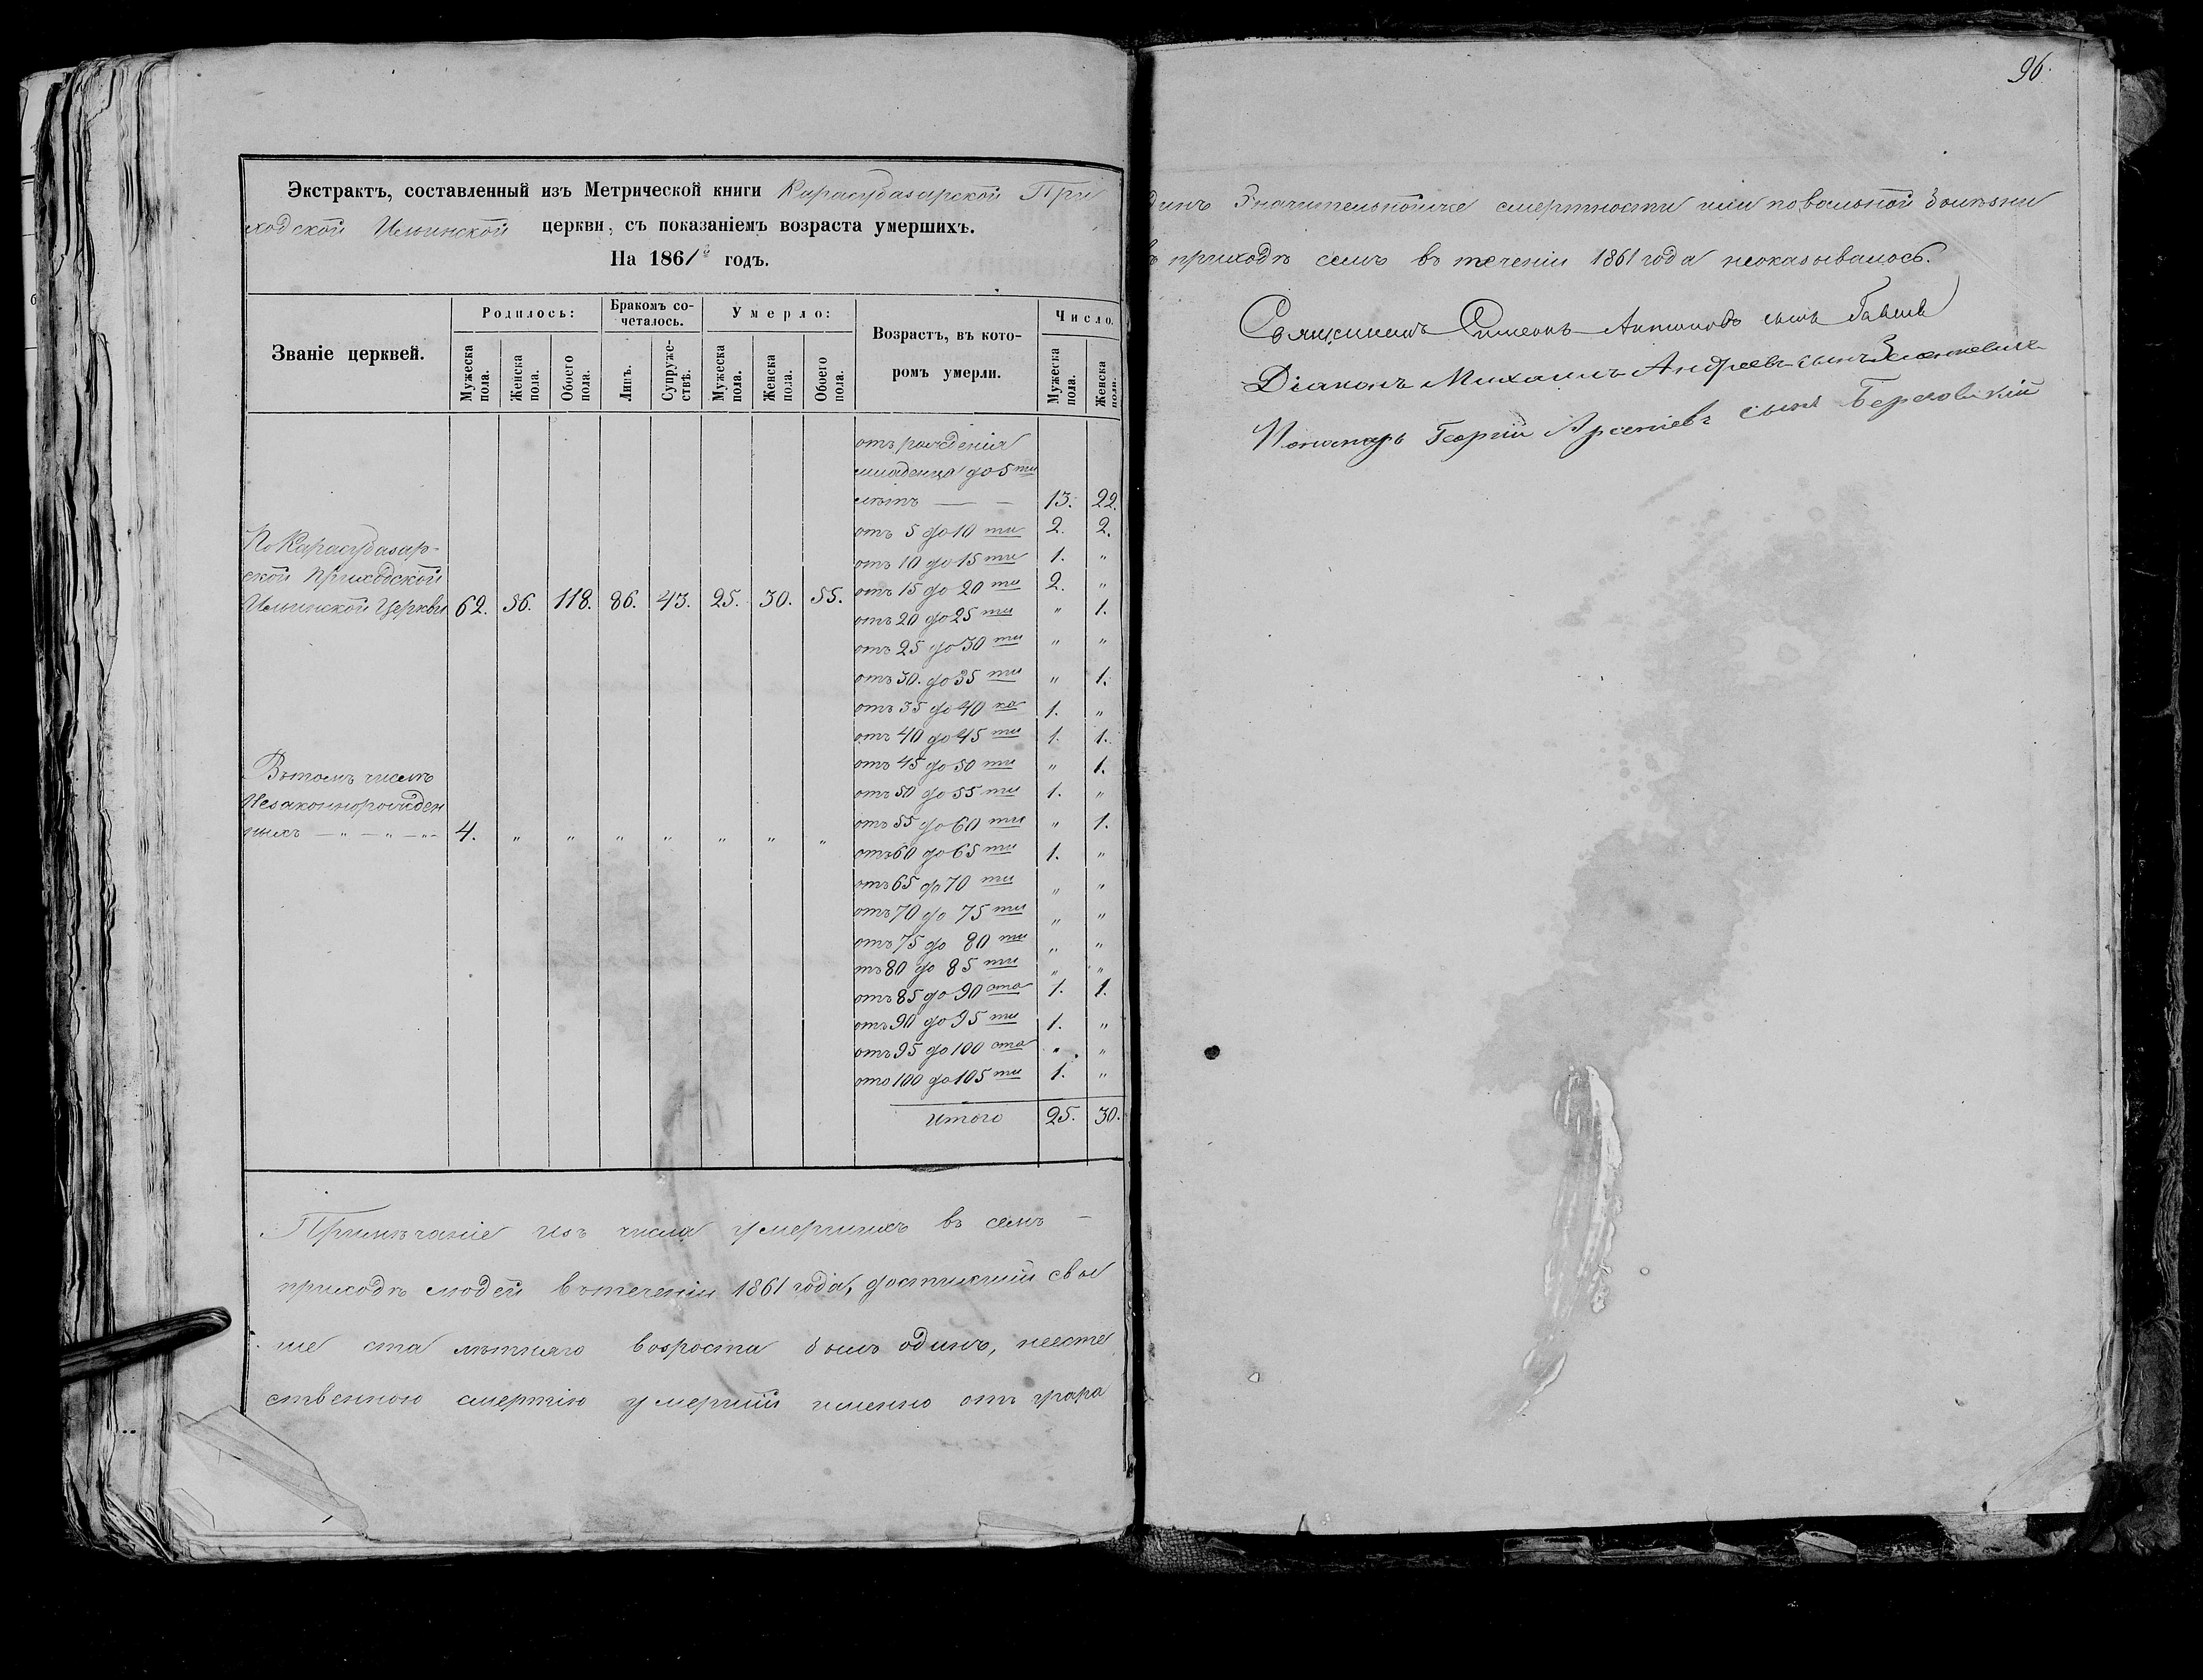 96.
Экстрактъ, составленный изъ Метрической книги Карасубазарской При
ходской Ильинской церкви, съ показаніемъ возраста умершихъ.
На 1861й годъ.
Званіе церквей.
Родилось:
Бракомъ со-
четалось.
Умерло:
Возрастъ, въ кото-
ромъ умерли.
Число.
Мужеска пола.
Женска пола.
Обоего пола.
Лицъ.
Супруже-
ствъ.
Мужеска пола.
Женска пола.
Обоего пола.
Мужеска пола.
Женска пола.
По Карасубазар-
ской Приходской
Ильинской Церкви 62. 56. 118. 86. 43. 25. 30. 55.
Въ томъ числѣ
Незаконнорожден
ныхъ — „ — „ — „ 4. „ „ „ „ „ „ „
отъ рожденія
младенца до 5 ти
лѣтъ — — 13. 22.
отъ 5 до 10 ти 2. 2.
отъ 10 до 15 ти 1. „
отъ 15 до 20 ти 2. „
отъ 20 до 25 ти „ 1.
отъ 25 до 30 ти „ „
отъ 30. до 35 ти „ 1.
отъ 35 до 40 ка 1. „
отъ 40 до 45 ти 1. 1.
отъ 45 до 50 ти „ 1.
отъ 50 до 55 ти 1. „
отъ 55 до 60 ти „ 1.
отъ 60 до 65 ти 1. „
отъ 65 до 70 ти „ „
отъ 70 до 75 ти „ „
отъ 75 до 80 ти „ „
тъ 80 до 85 ти „ „
отъ 85 до 90 ста 1. 1.
отъ 90 до 95 ти 1. „
отъ 95 до 100 ста „ „
ото 100 до 105 ти 1. „
Итого 25. 30.
Примѣчаніе изъ числа умершихъ въ семъ —
приходѣ людей въ теченіи 1861 года, достигшій свы
ше ста лѣтняго возроста былъ одинъ, неесте
ственною смертію умершій именно отъ удара
динъ Значительной же смертности или повальной болѣзни
въ приходѣ семъ въ теченіи 1861 года неоказывалось.
Священникъ Симеонъ Антоновъ сынъ
Діаконъ Михаилъ Андреевъ сынъ
Пономарь Георгій Арсеніевъ сынъ